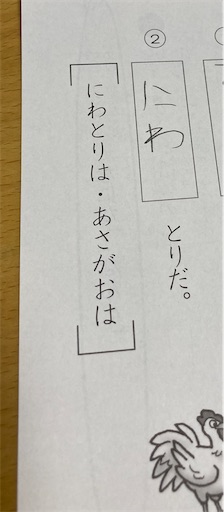 ②
にわ
とりだ。
にわとりは・あさがおは